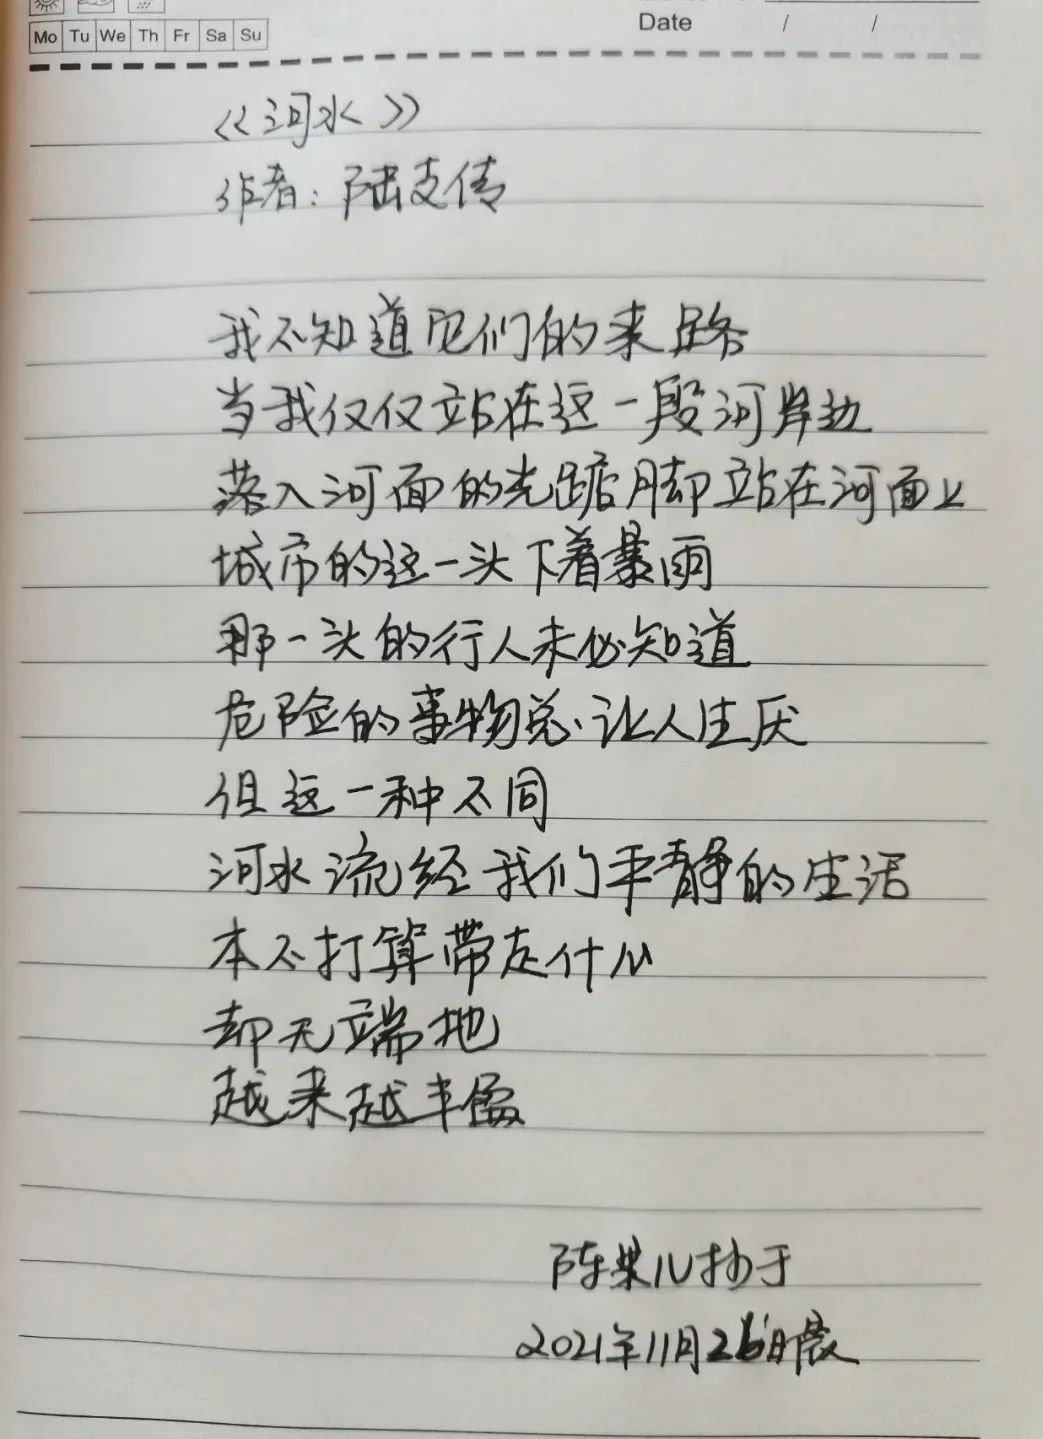 Mo Tu We Th Fr Sa Su
Date / /
《河水》
作者：陆支传
我不知道它们的来路
当我仅仅站在这一段河岸边
落入河面的光踮脚站在河面上
城市的这一头下着暴雨
那一头的行人未必知道
危险的事物总让人生厌
但这一种不同
河水流经我们平静的生活
本不打算带走什么
却无端地
越来越丰盈
陈果儿抄于
2021年11月26日晨